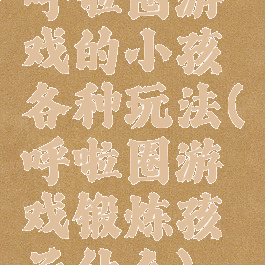 呼啦圈游
戏的小孩
各种玩法(
呼啦圈游
戏锻炼孩